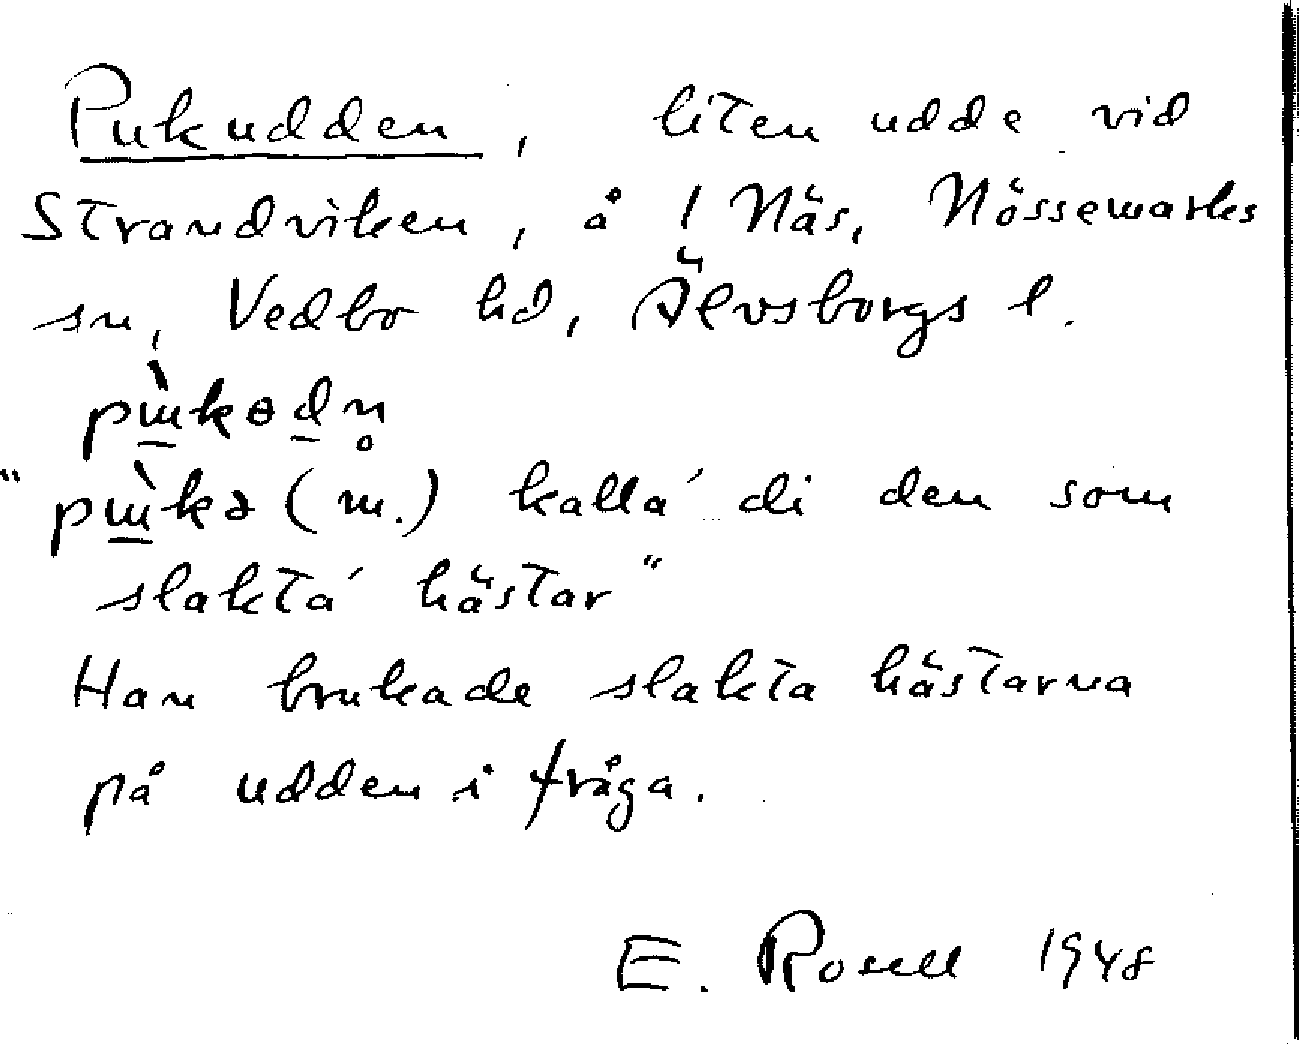 Pukudden, liten udde vid
Strandviken, å 1 Näs, Nössemarks
sn, Vedbo hd, Älvsborgs l.
pɯ̱̀kɵd̲n̥
"pɯ̱̀kə (m.) kalla' di den som
slakta' hästar"
Han brukade slakta hästarna
på udden i fråga.
E. Rosell 1948